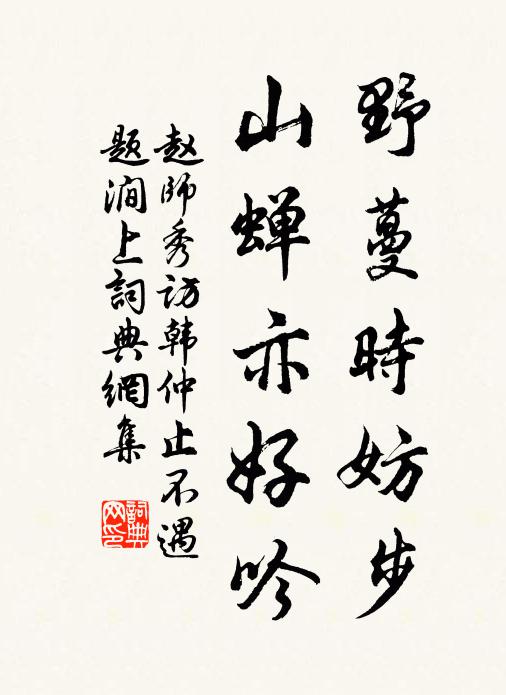 野蔓時妨步
山蝉亦好吟
赵師秀访韩仲止不遇
题澗上詞典網集
詞典网印